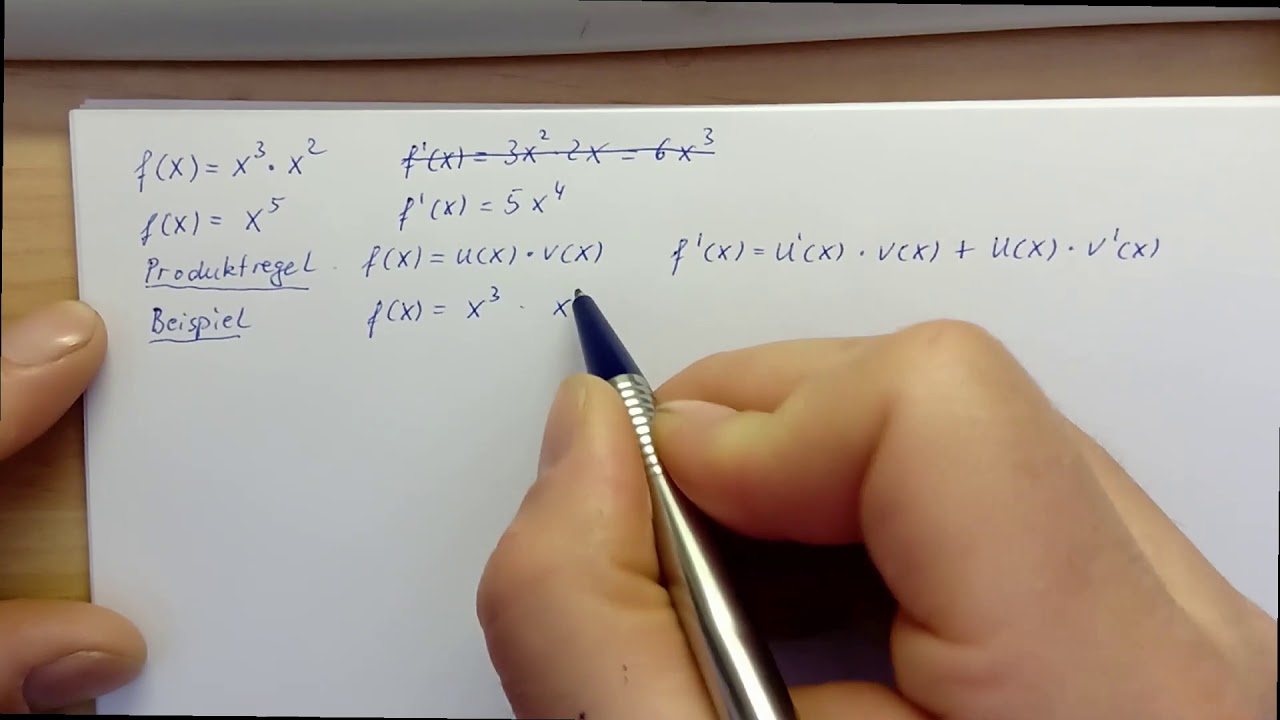 f(x) = x³ · x² f'(x) = 3x² · 2x = 6x³
f(x) = x⁵ f'(x) = 5x⁴
Produktregel f(x) = u(x) · v(x) f'(x) = u'(x) · v(x) + u(x) · v'(x)
Beispiel f(x) = x³ · x